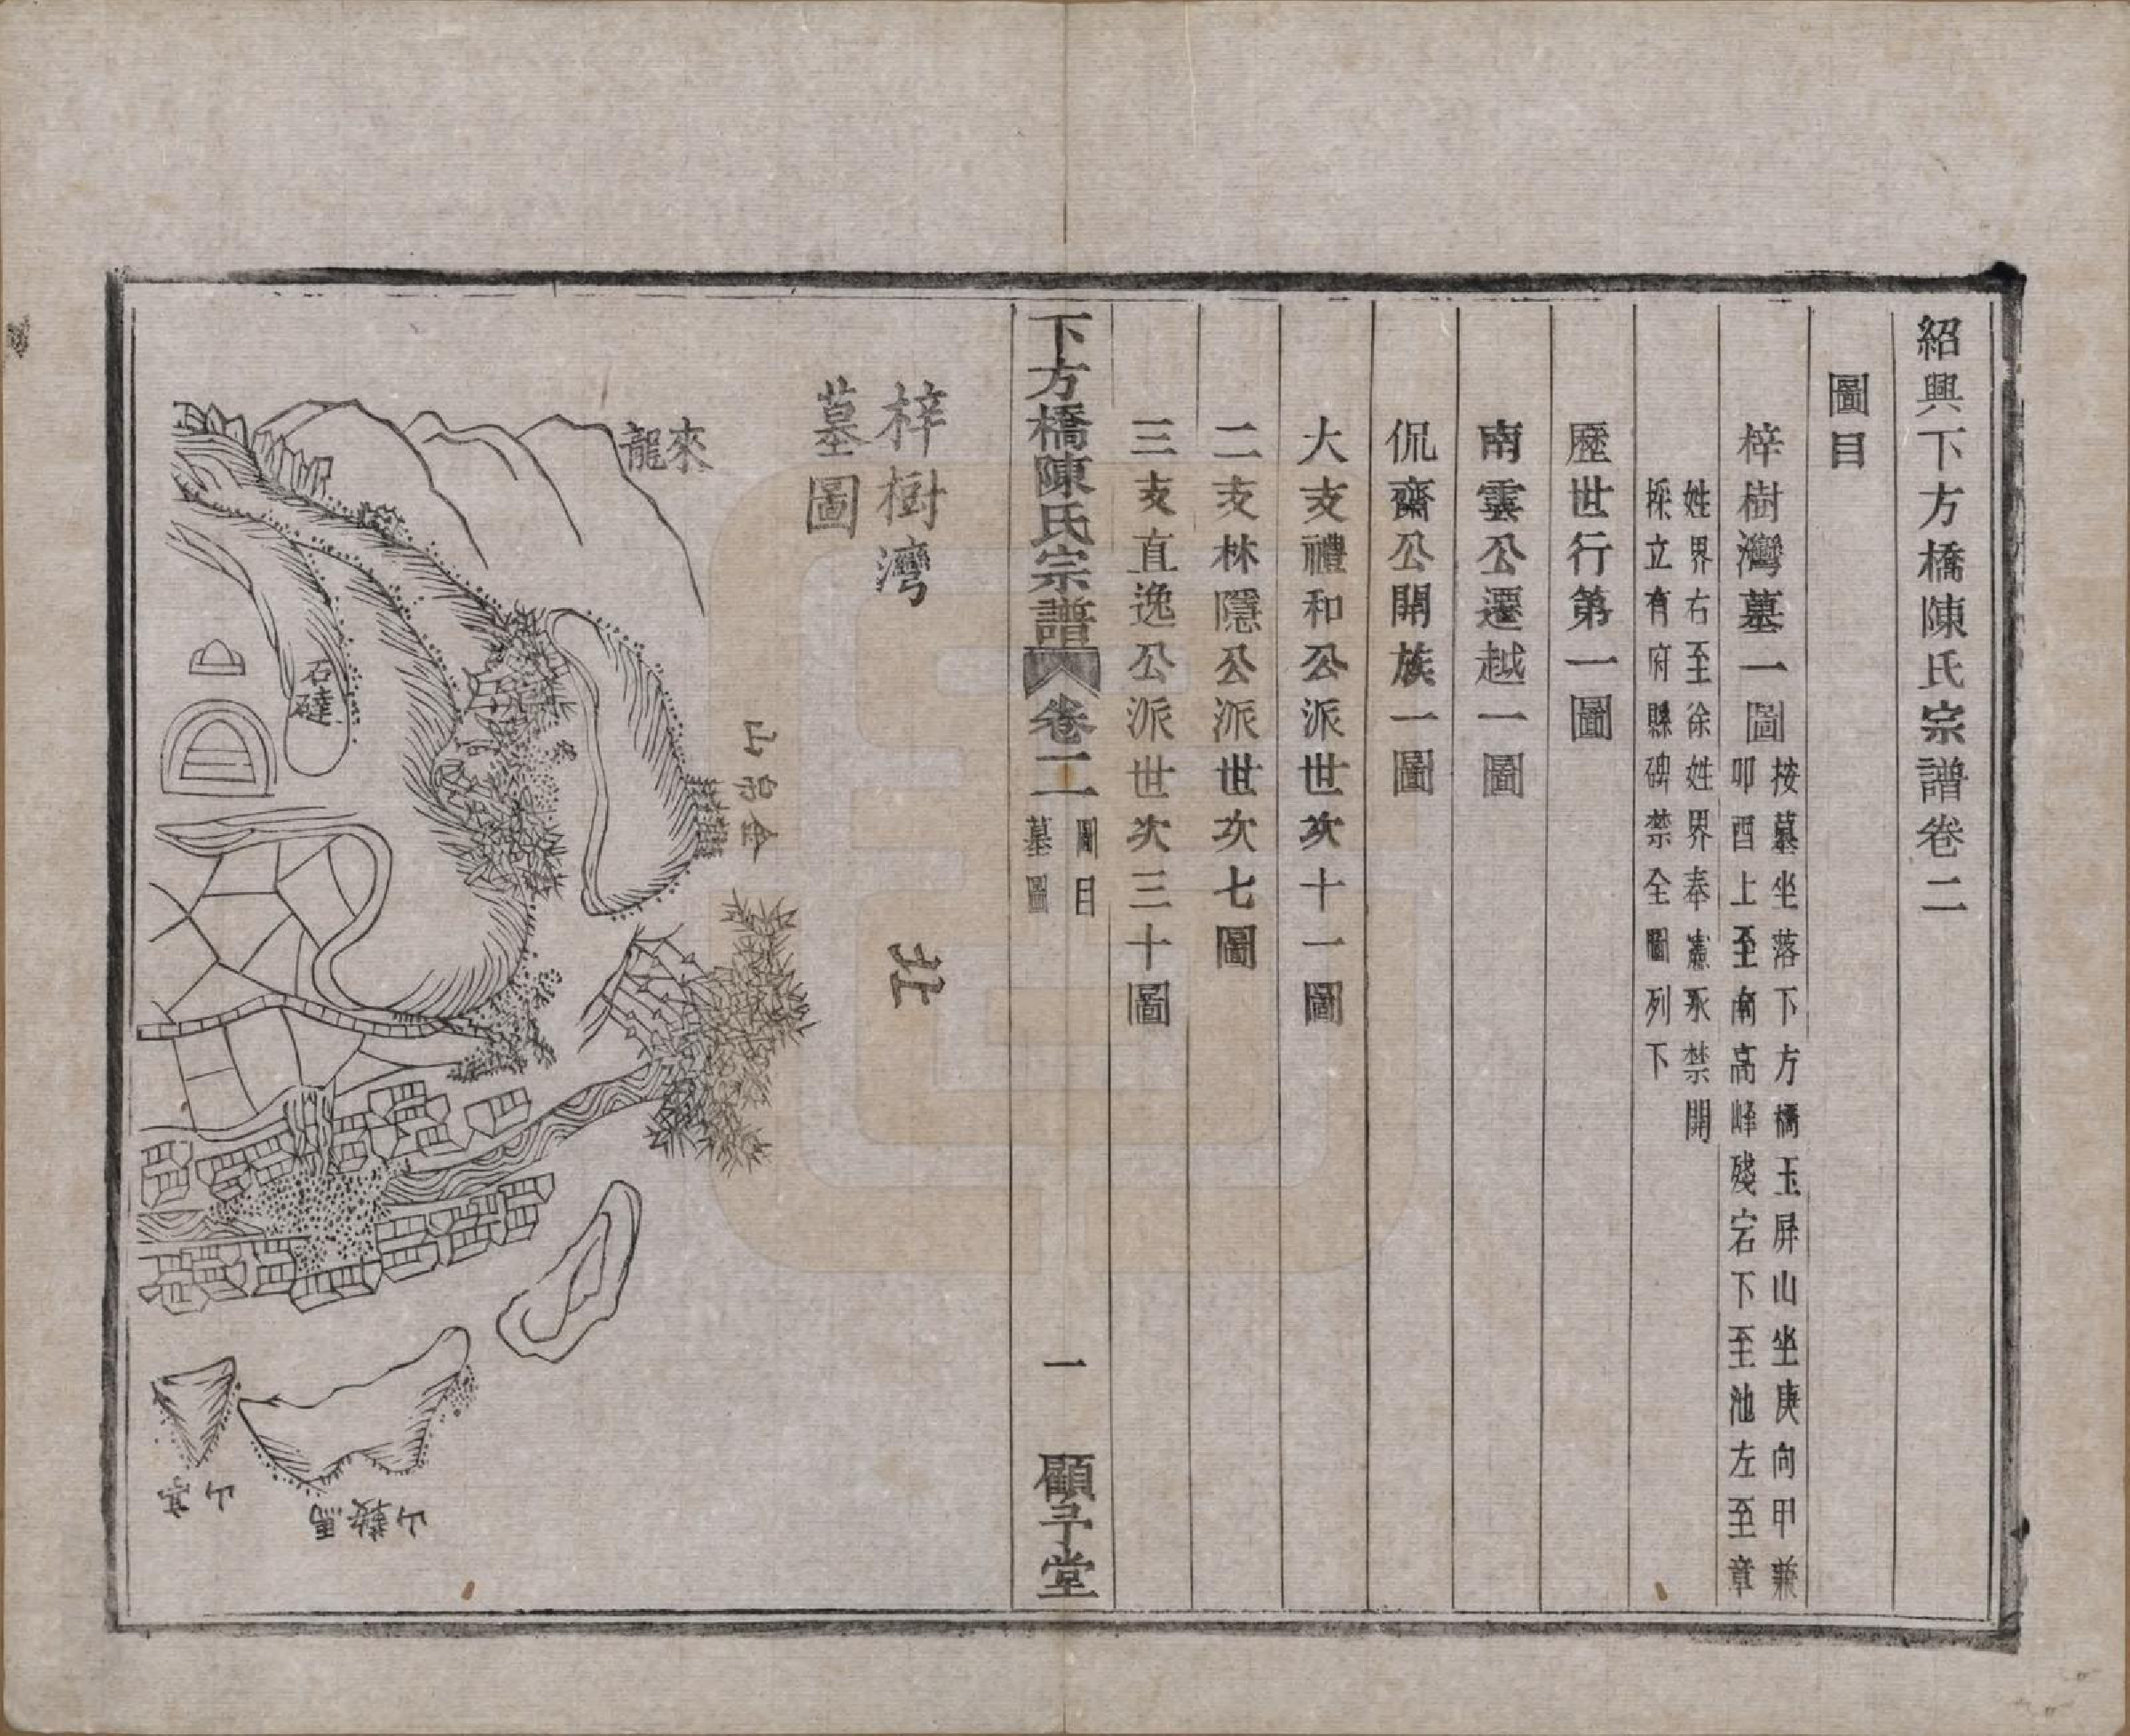 紹興下方橋陳氏宗譜卷二
圖目
梓樹灣墓一圖
按墓坐落下方橋玉屏山坐庚向甲兼
卯酉上至南高峰殘宕下至池左至章
姓界右至徐姓界奉憲永禁開
採立有府縣碑禁全圖列下
歷世行第一圖
南雲公遷越一圖
侃齋公開族一圖
大支禮和公派世次十一圖
二支林隱公派世次七圖
三支直逸公派世次三十圖
下方橋陳氏宗譜
卷二
圖目
墓圖
一
顧予堂
梓樹灣
墓圖
北
來龍
石磴
金帛山
馬鞍山
亭山